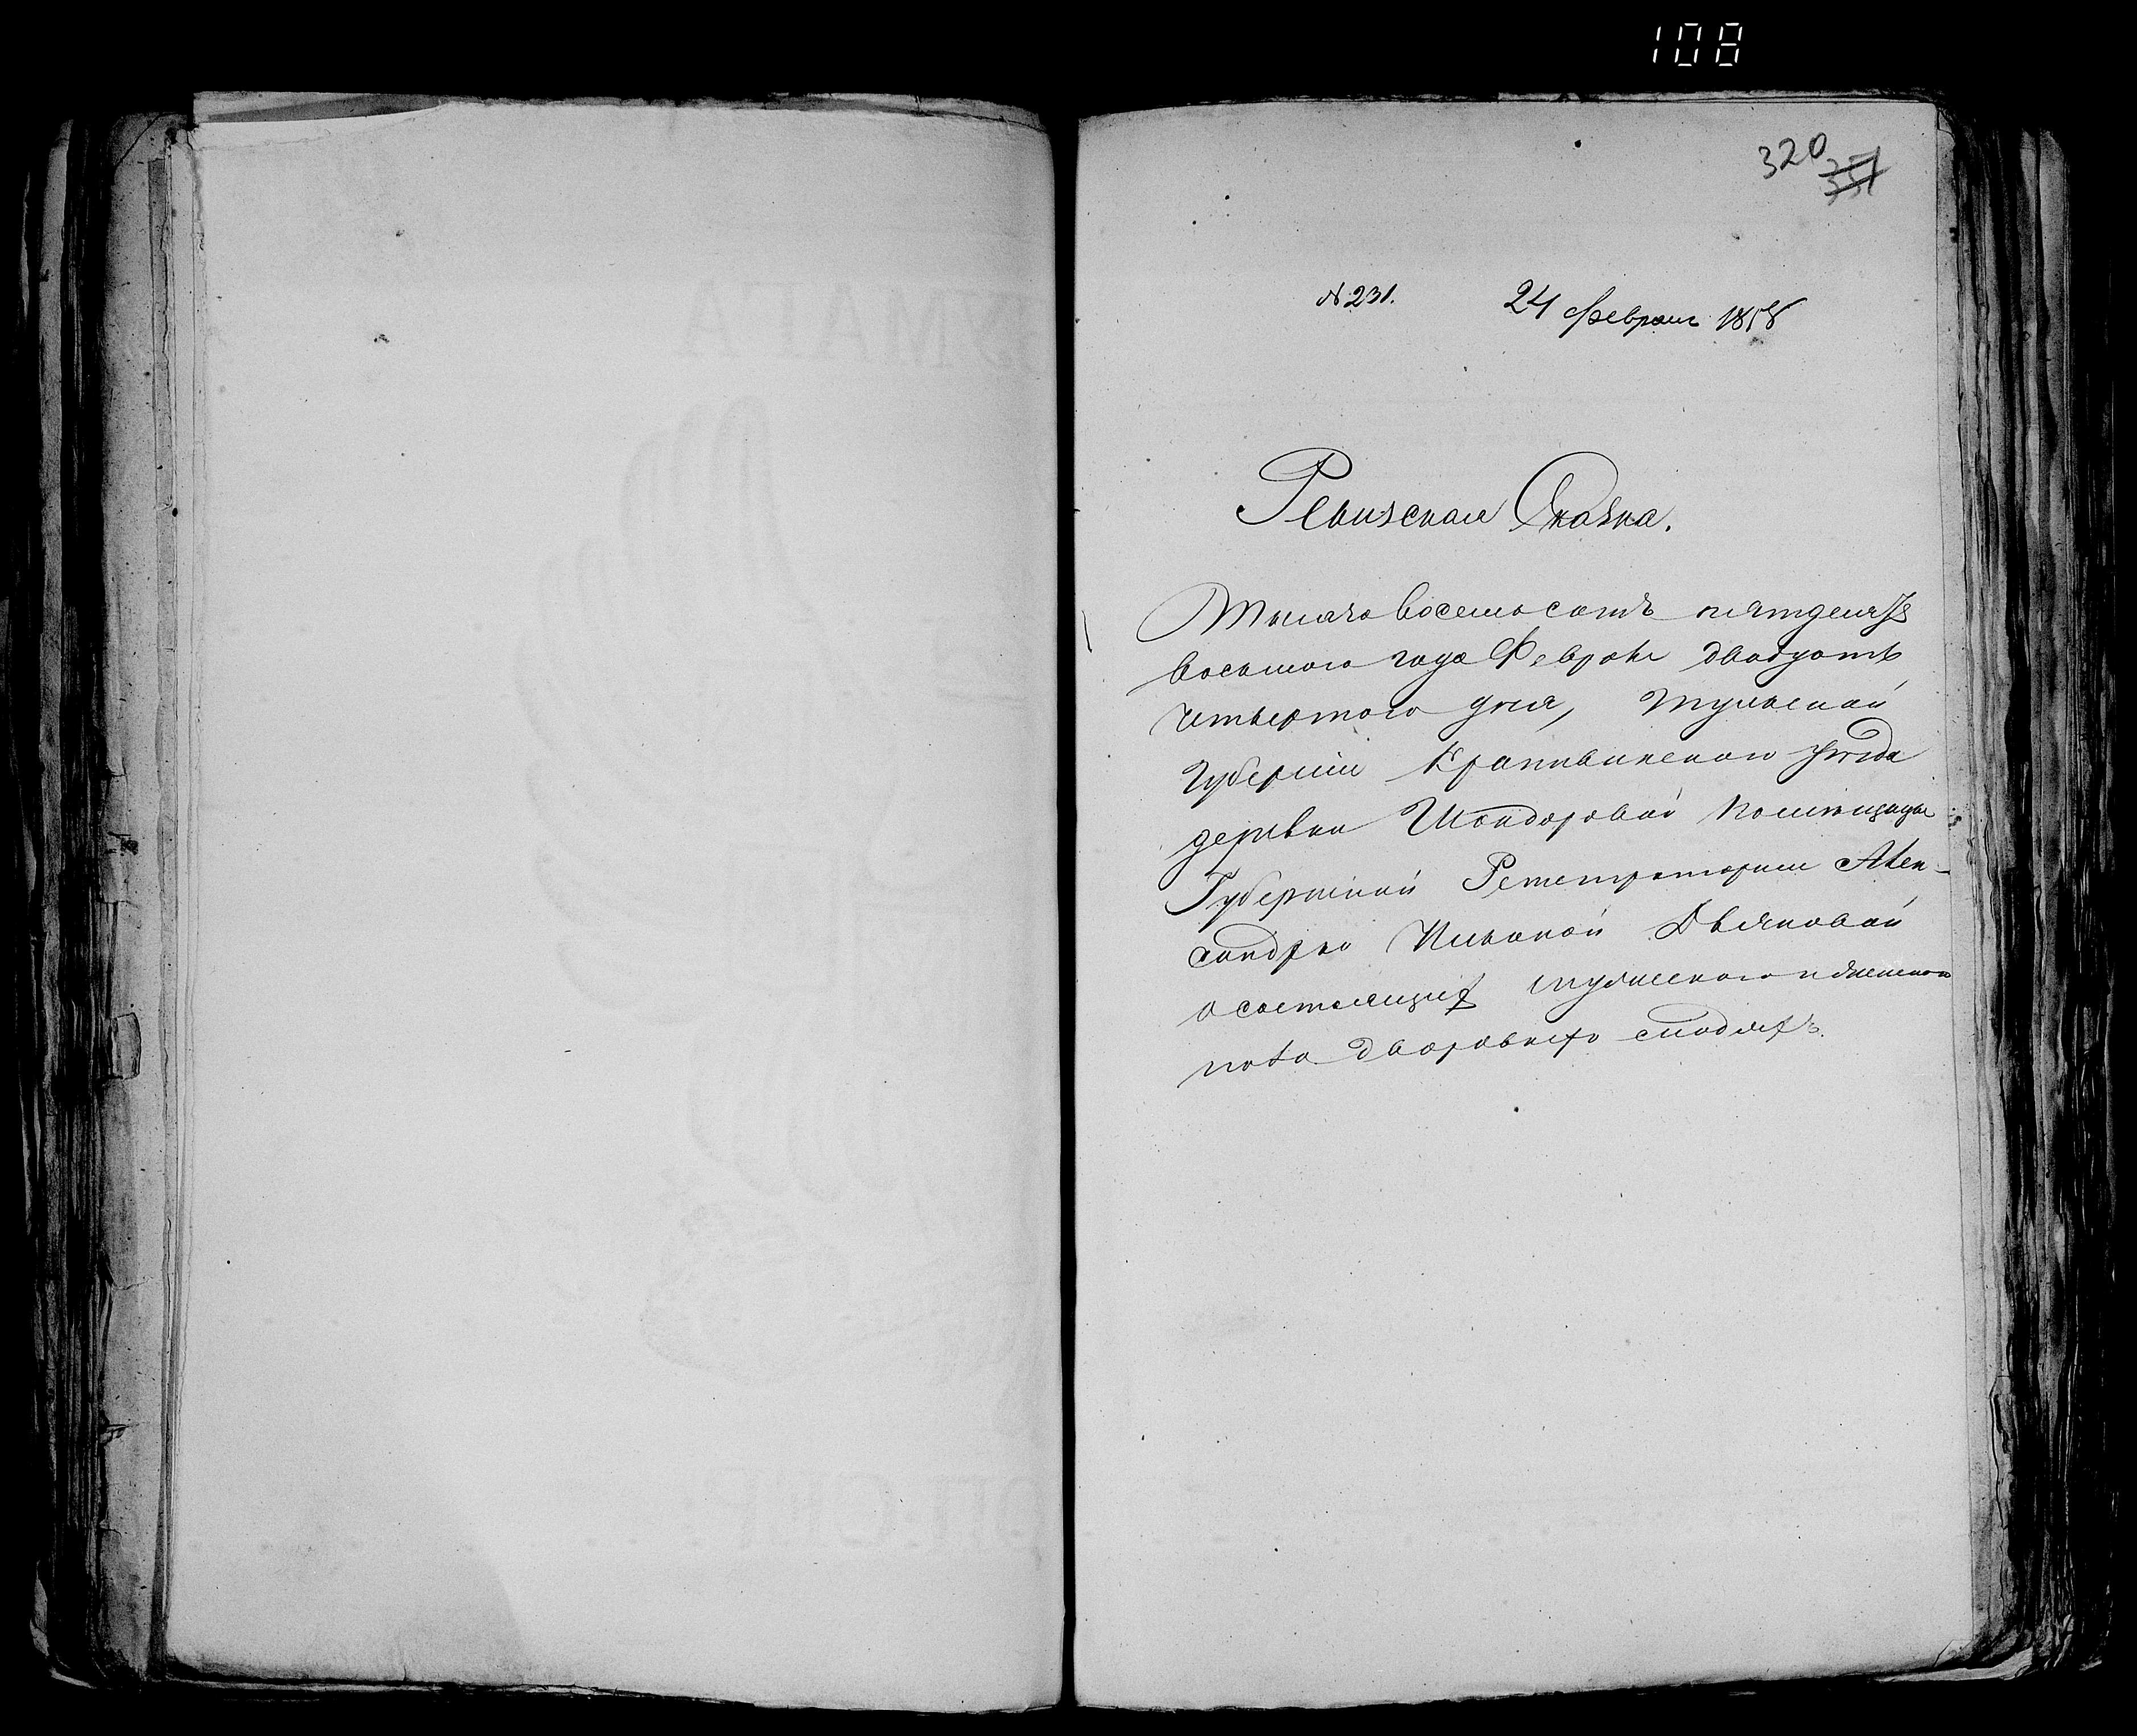 108
320
351
№ 231.
24 февраля 1858
Ревизская Сказка.
Тысяча восемьсотъ пятьдесятъ
восьмого года Февраля двадцать
четвертого дня, Тульской
Губерніи Крапивенского уѣзда
деревни Шондоровой Помѣщицы
Губернской Регистраторши Алек-
сандры Ивановой Дьяковой
о состоящихъ мужескаго и женскаго
пола дворовыхъ людяхъ.